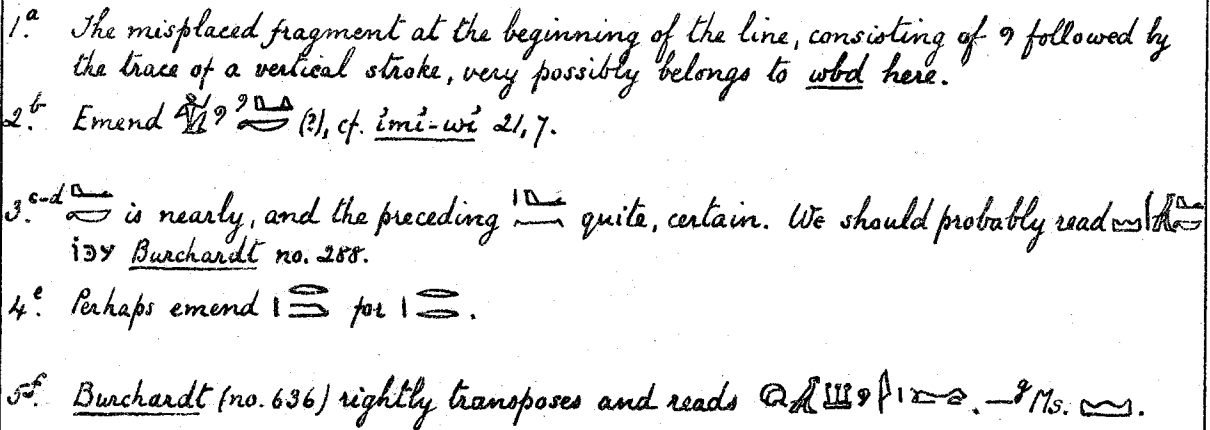 1.ᵃ The misplaced fragment at the beginning of the line, consisting of 𓏲 followed by
the trace of a vertical stroke, very possibly belongs to wbd here.
2.ᵇ Emend (?), cf. i҆mi҆-wi҆ 21,7.
3.ᶜ⁻ᵈ is nearly, and the preceding quite, certain. We should probably read
Burchardt no. 288.
4.ᵉ Perhaps emend for .
5.ᶠ Burchardt (no. 636) rightly transposes and reads . —ᵍ Ms. .